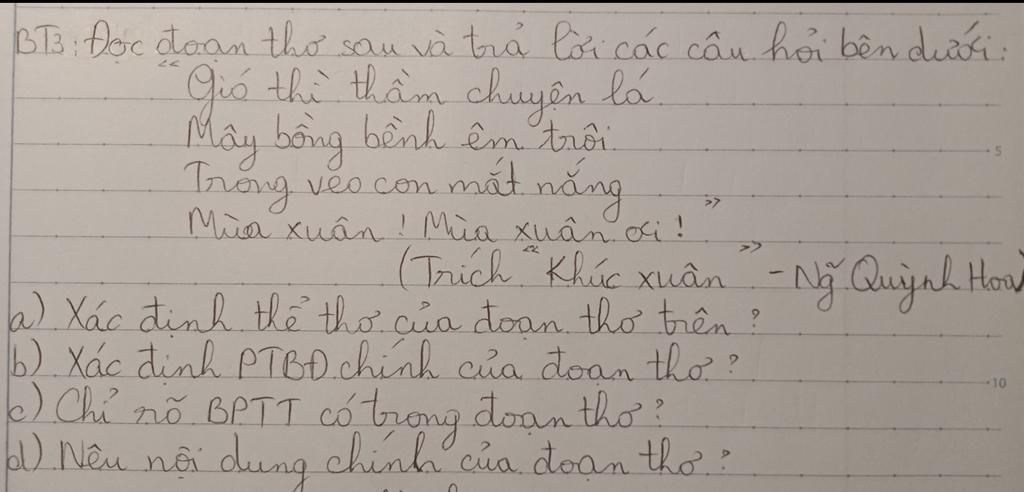 BT3: Đọc đoạn thơ sau và trả lời các câu hỏi bên dưới:
"Gió thì thầm chuyện lá
Mây bồng bềnh êm trôi
Trong veo con mắt nắng
Mùa xuân! Mùa xuân ơi!"
(Trích "Khúc xuân" - Ng~ Quỳnh Hoa)
a) Xác định thể thơ của đoạn thơ trên?
b) Xác định PTBĐ chính của đoạn thơ?
c) Chỉ rõ BPTT có trong đoạn thơ?
d) Nêu nội dung chính của đoạn thơ?